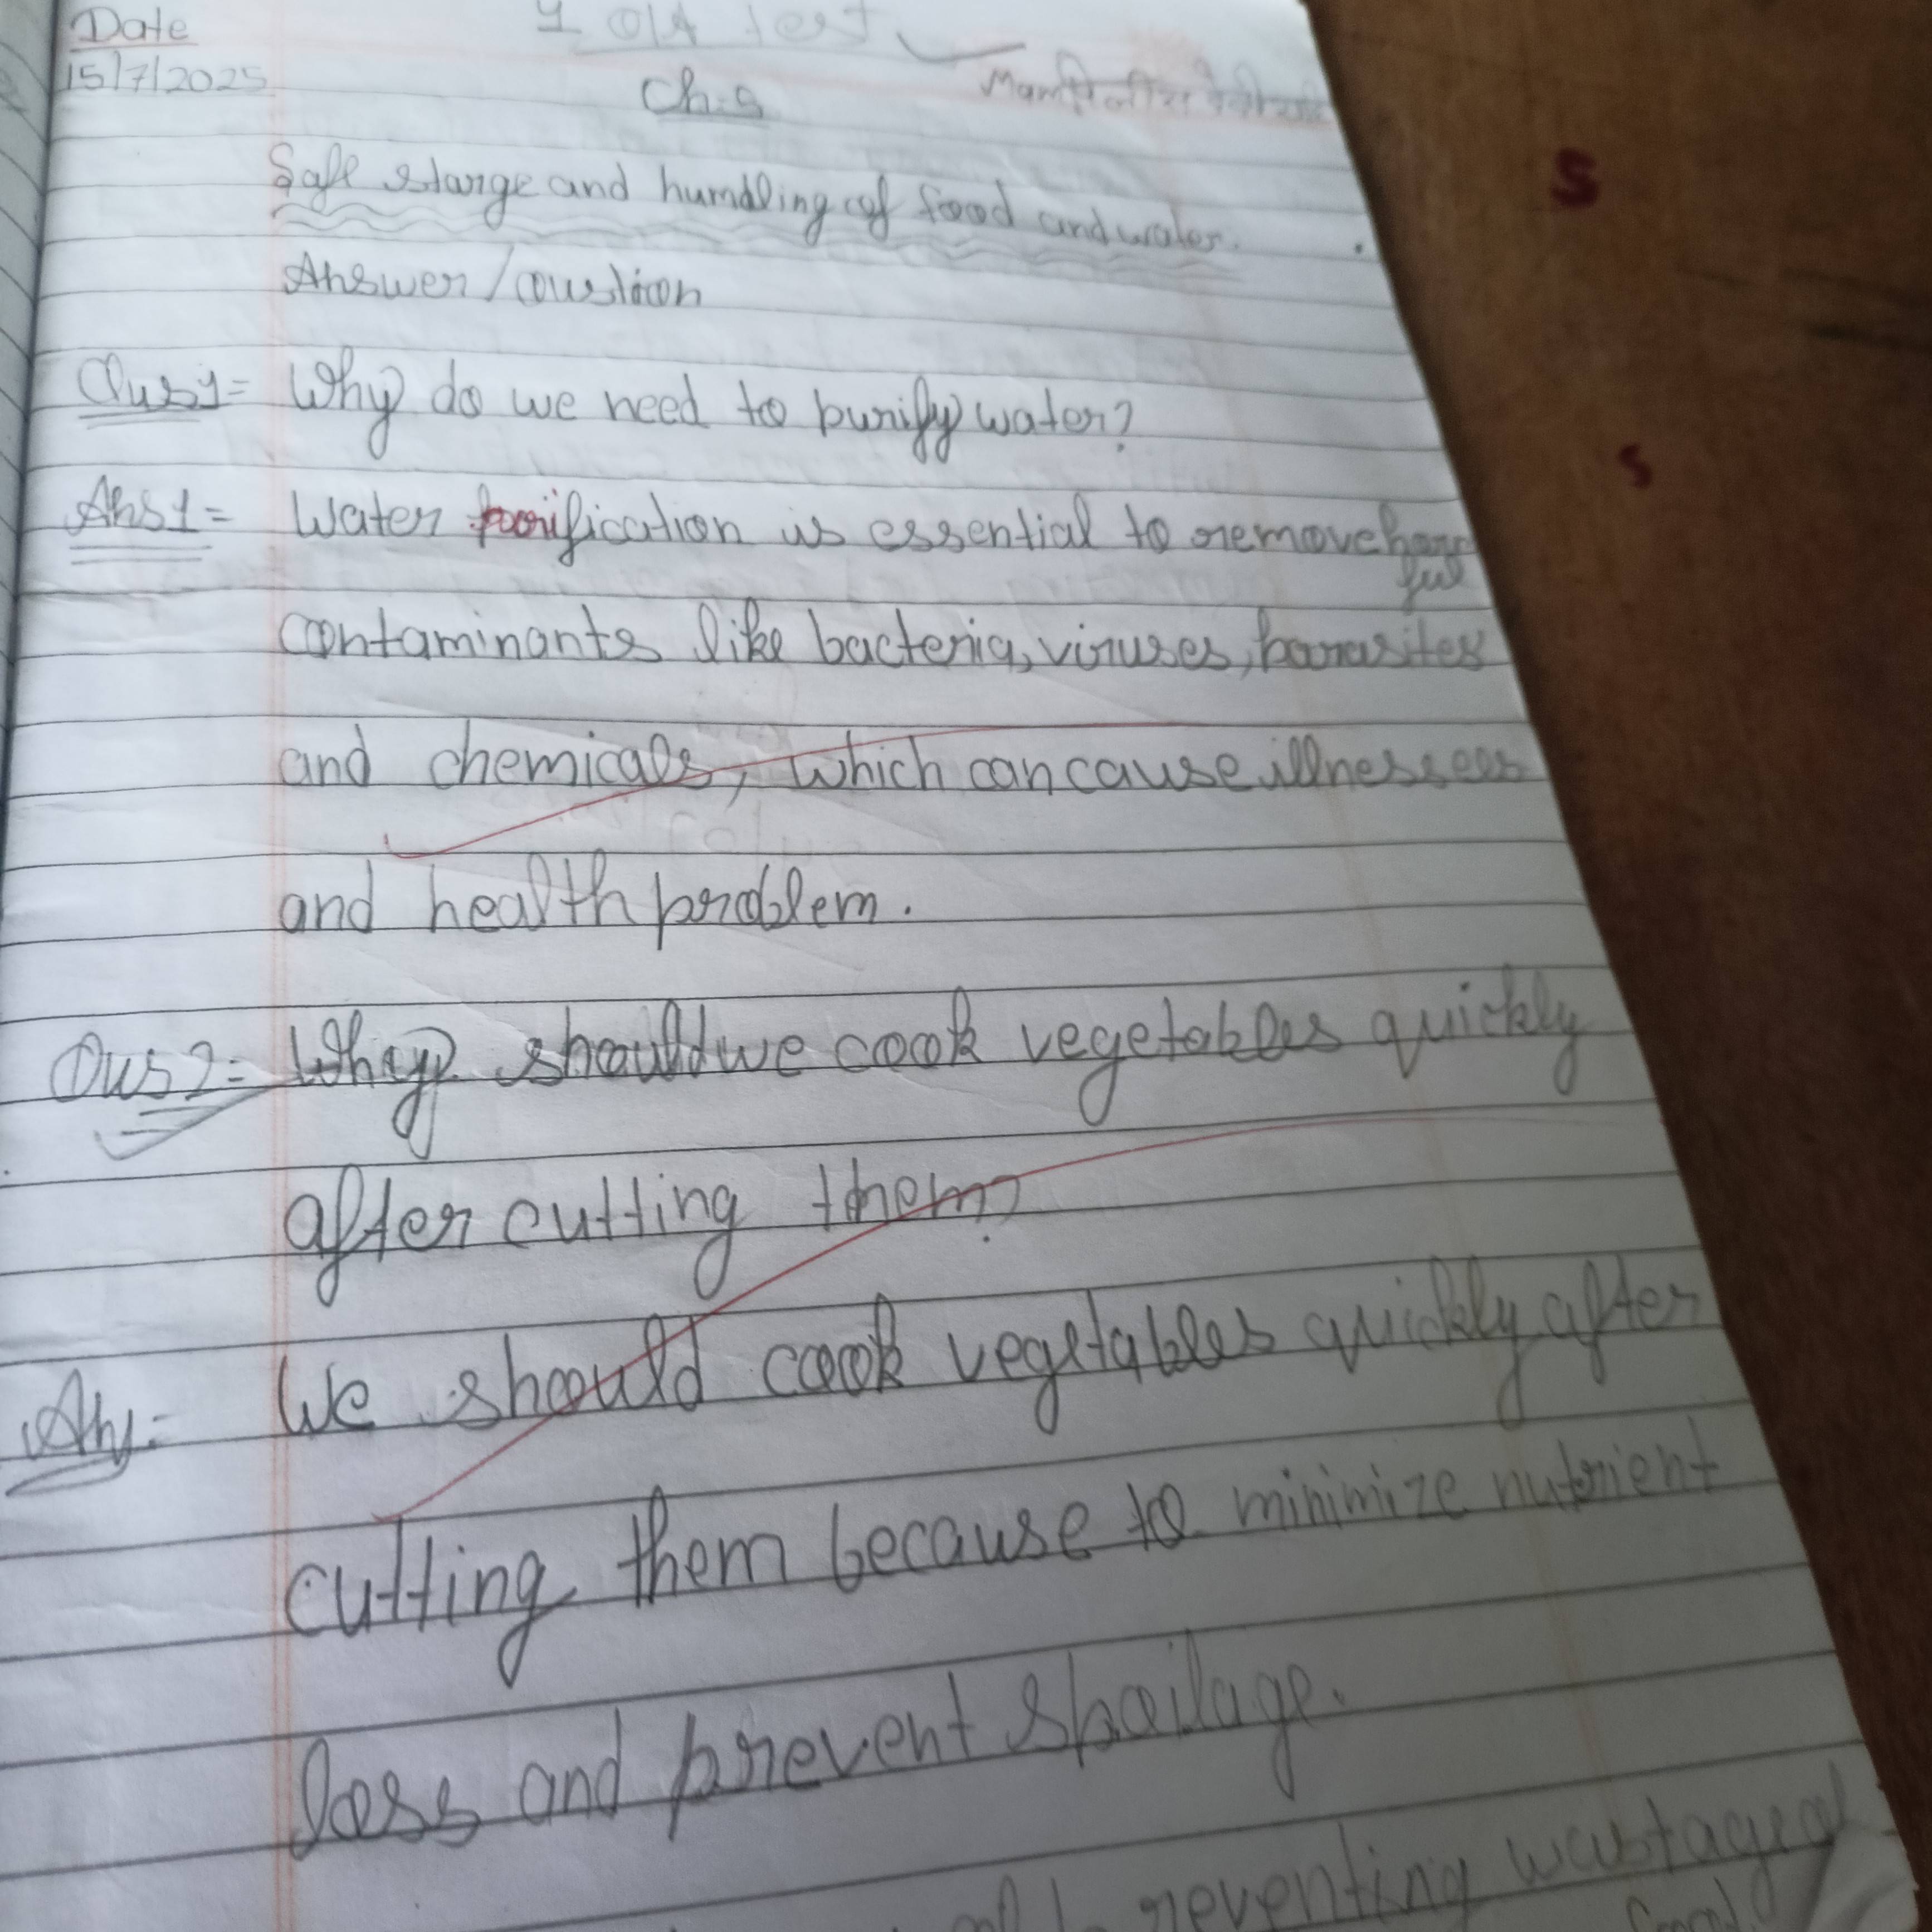 Date
15/7/2025
Ch:5
Safe starge and humdling of food and water.
Answer/Oustion
Ous1= Why do we need to purify water?
Ans1= Water purification is essential to remove harm
ful
contaminants like bacteria, viruses, parasites
and chemicals, which can cause illnessees
and health problem.
Ous2= Why should we cook vegetables quickly
after cutting them?
Ans= We should cook vegetables quickly after
cutting them because to minimize nutrient
loss and prevent spoilage.
preventing wastage of